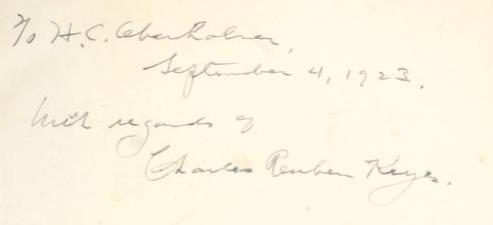 To H. C. Oberholser,
September 4, 1923.
With regards of
Charles Reuben Keyes.